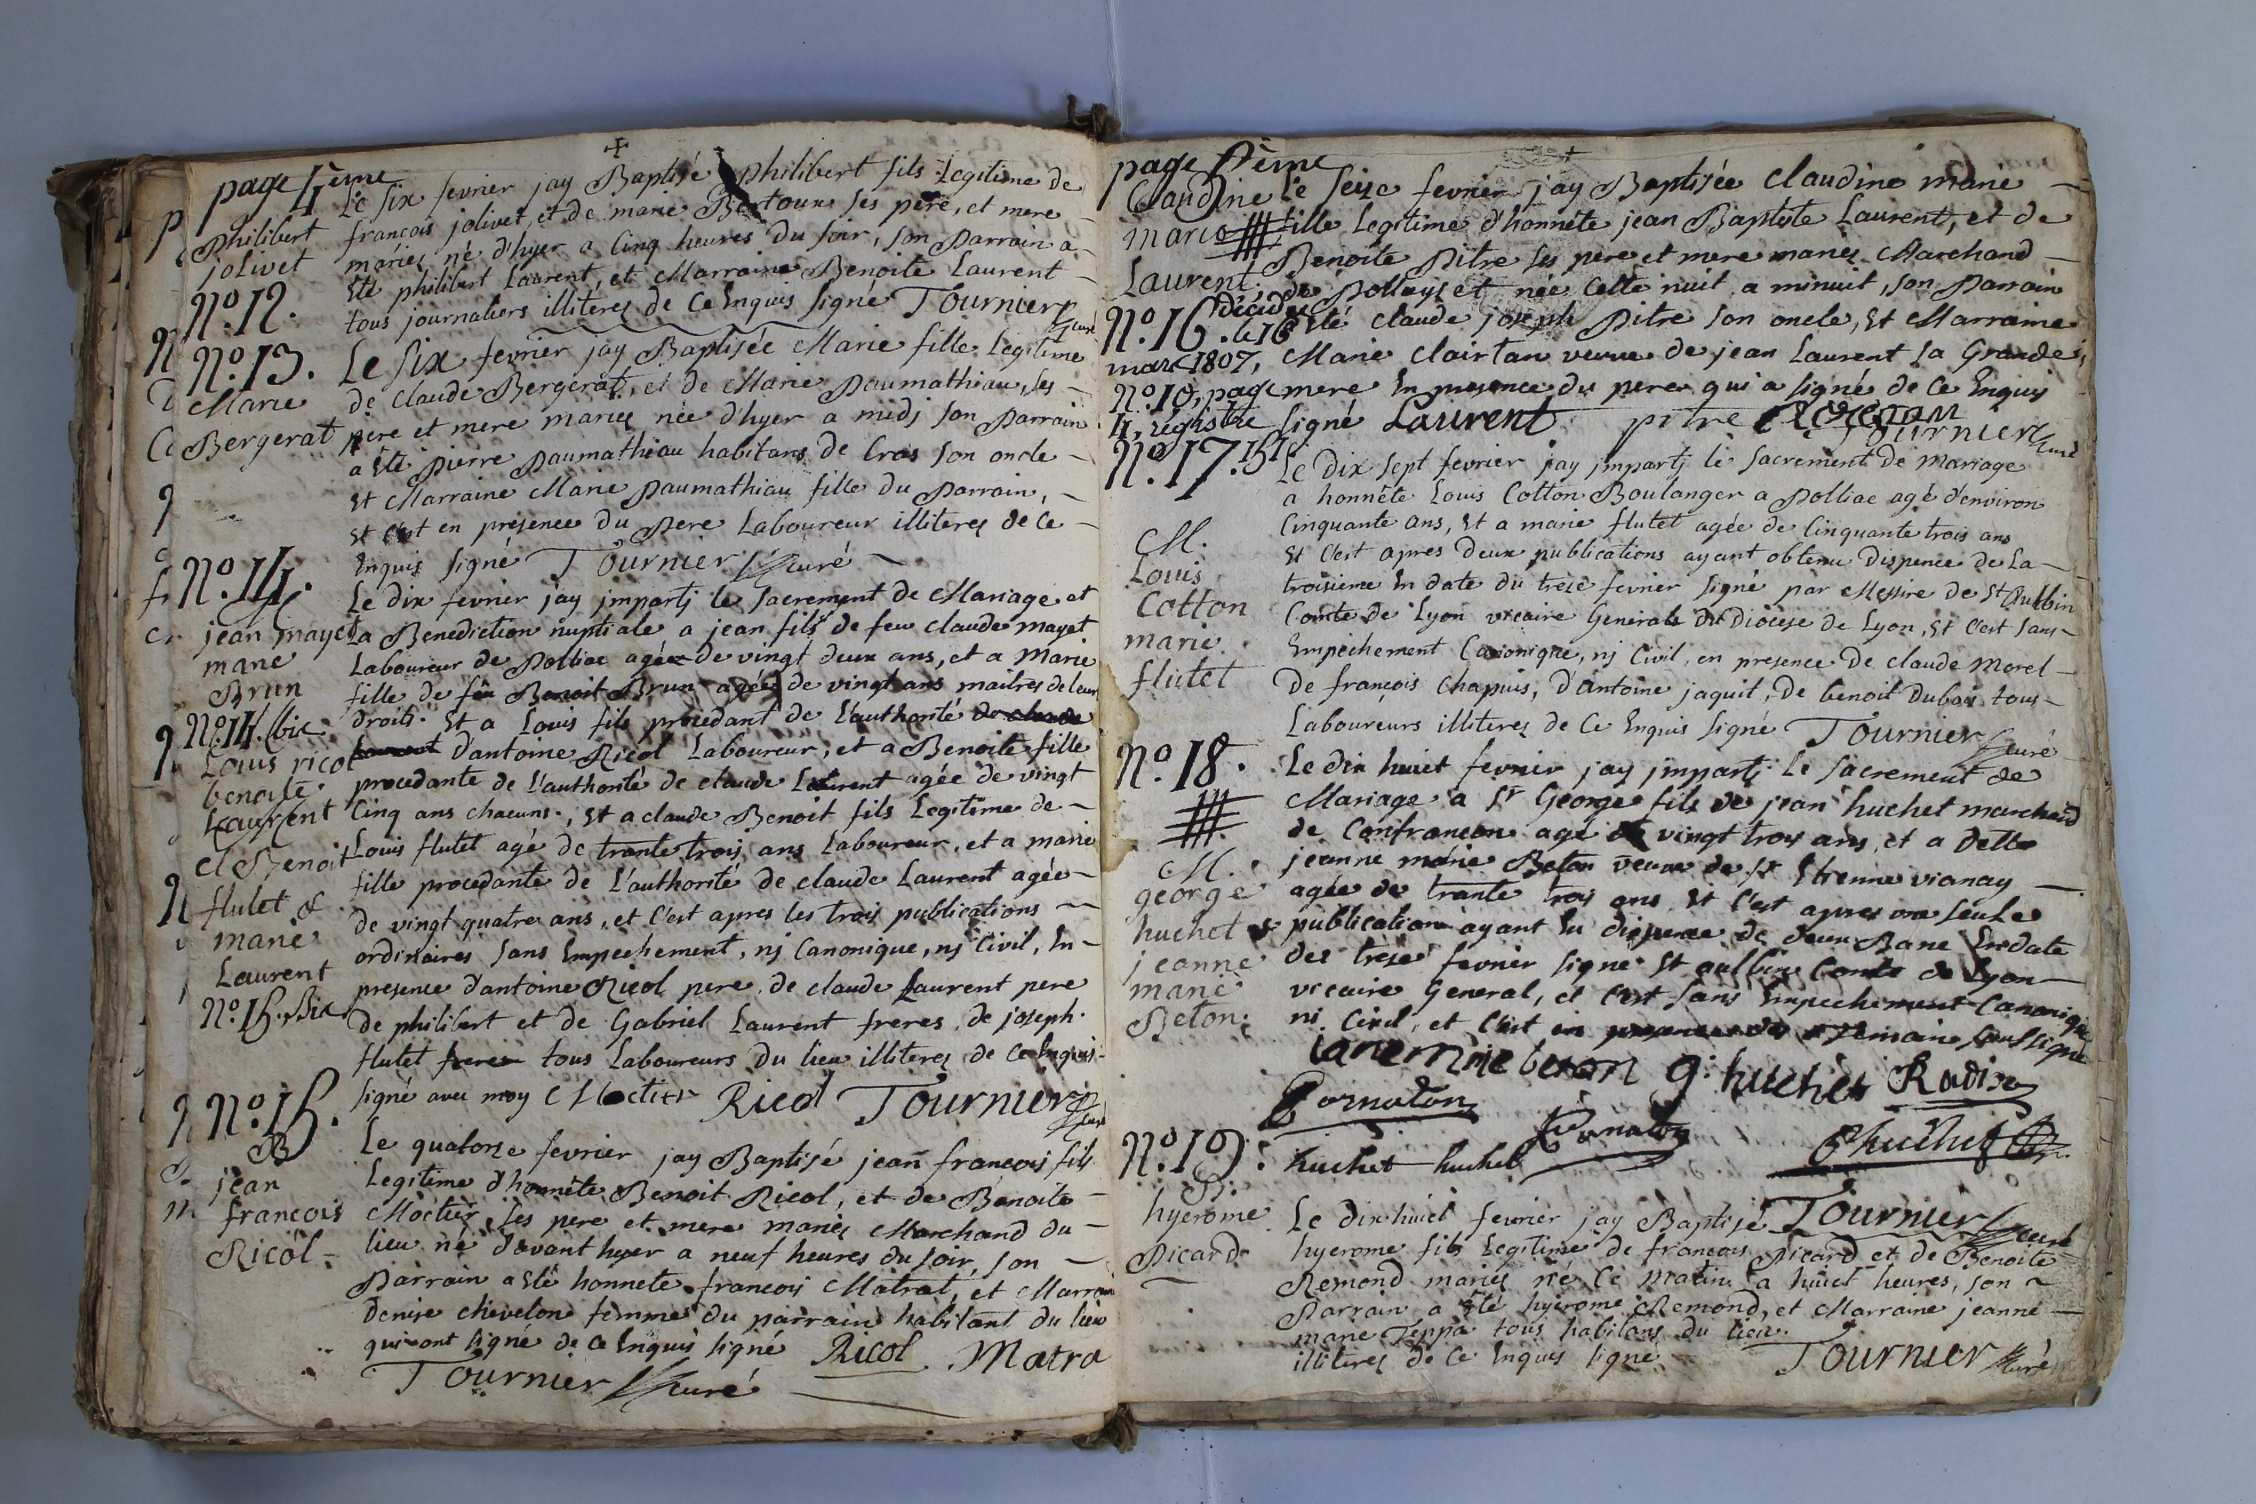 page 4ème
philibert
jolivet
N°. 12.
Le six fevrier jay Baptisé philibert fils Legitime de
francois jolivet, et de marie Bertoux ses pere, et mere
mariés né d'hyer a Cinq heures du soir, son parrain a
Eté philibert Laurent, et Marraine Benoite Laurent
tous journaliers illiteres de ce Enquis signé Tournier curé
N°. 13.
Marie
Bergerat
Le six fevrier jay Baptisée Marie fille Legitime
de claude Bergerat, et de Marie paumathiau, ses
pere et mere mariés née d'hyer a midj son parrain
a Eté pierre paumathiau habitans de Cras son oncle
Et Marraine Marie paumathiau fille du parrain,
Et c'est en presence du pere Laboureur illiteres de ce
Enquis signé Tournier curé
N°. 14.
M
jean mayet
marie
Brun
N°. 14. bis
Louis ricol
benoite
Laurent
cl Benoit
flutet &
marie
Laurent
N°. 15. bis
Le dix fevrier jay jmpartj le sacrement de Mariage et
La Benediction nuptiale a jean fils de feu claude mayet
Laboureur de polliac agée de vingt deux ans, et a Marie
fille de feu Benoit Brun agée de vingt ans maitres de leur
droits. Et a Louis fils procedant de L'authorité de claude
Laurent d'antoine Ricol Laboureur, et a Benoite fille
procedante de L'authorité de claude Laurent agée de vingt
Cinq ans chacuns, Et a claude Benoit fils Legitime de
Louis flutet agé de trante trois ans Laboureur, et a marie
fille procedante de L'authorité de claude Laurent agée
de vingt quatre ans, et c'est apres les trois publications
ordinaires sans Empechement, nj Canonique, nj Civil, En
presence d'antoine Ricol pere, de claude Laurent pere
de philibert et de Gabriel Laurent freres, de joseph
flutet freres tous Laboureurs du lieu illiteres de ce Enquis
signé avec moy Moctier Ricol Tournier curé
N°. 15.
B
jean
francois
Ricol
Le quatorze fevrier jay Baptisé jean francois fils
Legitime d'honnéte Benoit Ricol, et de Benoite
Moctier, ses pere et mere mariés Marchand du
lieu né d'avant hyer a neuf heures du soir, son
parrain a Eté honnete francois Matrat, et Marraine
denise chevelon femme du parrain habitant du lieu
qui ont signé de ce Enquis signé Ricol Matra
Tournier curé
page 5ème
Claudine
marie
Laurent
N°. 16. décédée
le 16
mars 1807,
N° 10, page
4, régistre
Le seize fevrier jay Baptisée claudine marie
fille Legitime d'honnéte jean Baptiste Laurent, et de
Benoite pitre ses pere et mere mariés Marchand
de pollayset née cette nuit a minuit, son parrain
Eté claude joseph pitre son oncle, Et Marraine
Marie clairtan veuve de jean Laurent sa Grande
mere En presence du pere qui a signé de ce Enquis
signé Laurent pitre Tournier curé
N°. 17.
M.
Louis
Cotton
marie
flutet
Le dix sept fevrier jay jmpartj le sacrement de mariage
a honnéte Louis Cotton Boulanger a polliac agé d'environ
Cinquante ans, Et a marie flutet agée de Cinquante trois ans
Et c'est apres deux publications ayant obtenu dispence de La
troisieme En date du treze fevrier signé par Messire de St Aulbin
Comte de Lyon vicaire General du diocese de Lyon, Et c'est sans
Empéchement Canonique, nj Civil, en presence de claude Morel
de francois chapuis, d'antoine jaquit, de benoit dubois tous
Laboureurs illiteres de ce Enquis signé Tournier curé
N°. 18.
M.
george
huchet &
jeanne
marie
Beton
Le dix huict fevrier jay jmpartj Le sacrement de
Mariage a Sr George fils de jean huchet marchand
de Confrancon agé de vingt trois ans, et a delle
jeanne marie Beton veuve de Sr Etienne vianay
agée de trante trois ans Et c'est apres une seule
publication ayant Eu dispence de deux Bans En date
des treze fevrier signé St aulbin Comte de Lyon
vicaire General, et c'est sans Empechement Canonique
ni Civil, et c'est en presence des temoins soussignés
jane marie beton g. huchet Radix
Cornaton Cornaton
huchet huchet Chuchet
N°. 19.
B.
hyerome
picard
Tournier curé
Le dix huict fevrier jay Baptisé
hyerome fils Legitime de francois picard et de Benoite
Remond mariés né ce matin a huict heures, son
parrain a Eté hyerome Remond, et Marraine jeanne
marie Teppa tous habitans du lieu
illiteres de ce Enquis signé Tournier curé